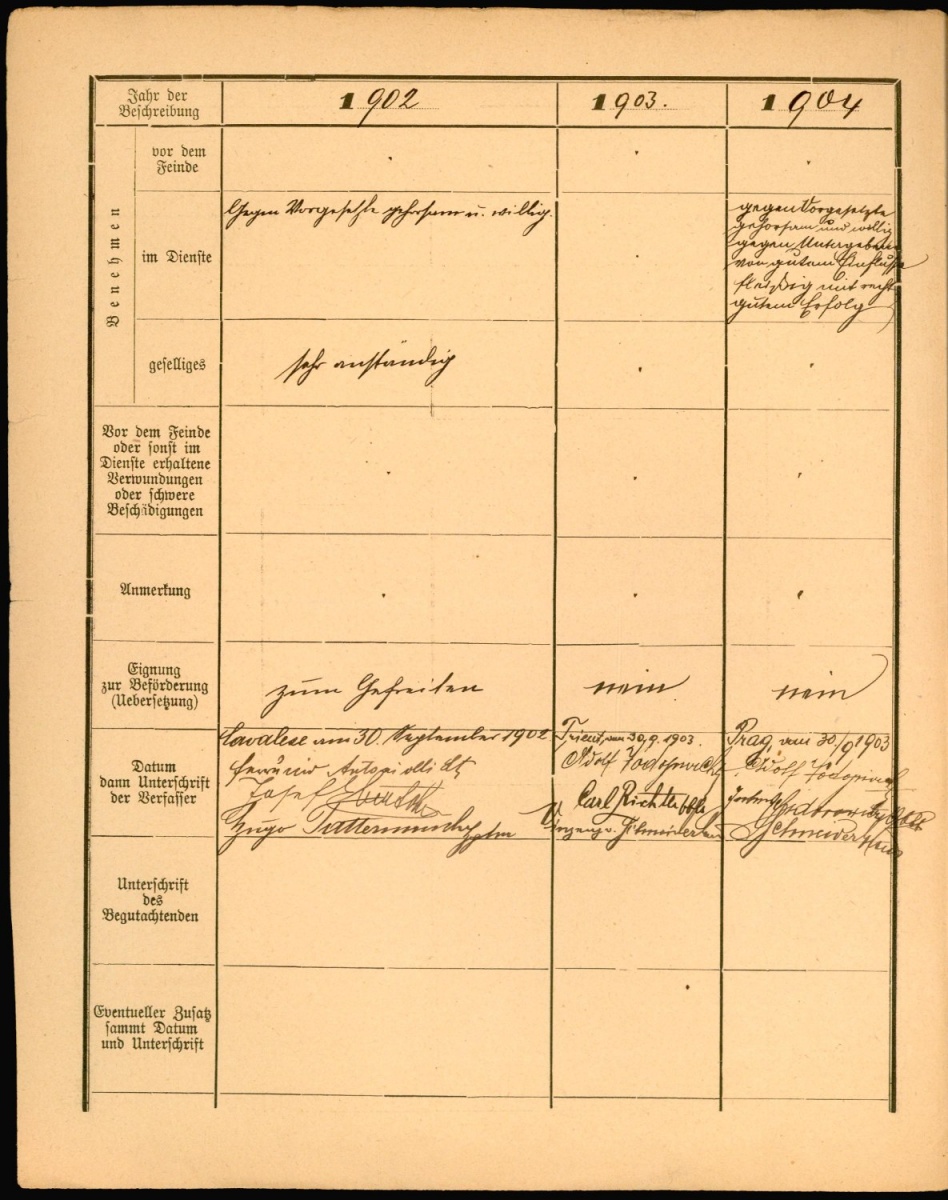 Jahr der
Beschreibung
1902
1903.
1904
Benehmen
vor dem
Feinde
im Dienste
Gegen Vorgesetzte gehorsam u. willig.
gegen Vorgesetzte
gehorsam und willig
gegen Untergebene
von gutem Einflusse
fleißig mit recht
gutem Erfolg
geselliges
sehr anständig
Vor dem Feinde
oder sonst im
Dienste erhaltene
Verwundungen
oder schwere
Beschädigungen
Anmerkung
Eignung
zur Beförderung
(Uebersetzung)
zum Gefreiten
nein
nein
Datum
dann Unterschrift
der Verfasser
Cavalese am 30. September 1902
Josef
Hugo
Trient, am 30/9. 1903.
Adolf
Carl Richter
Prag, am 30/9 1903
Adolf
Schneider
Unterschrift
des
Begutachtenden
Eventueller Zusatz
sammt Datum
und Unterschrift